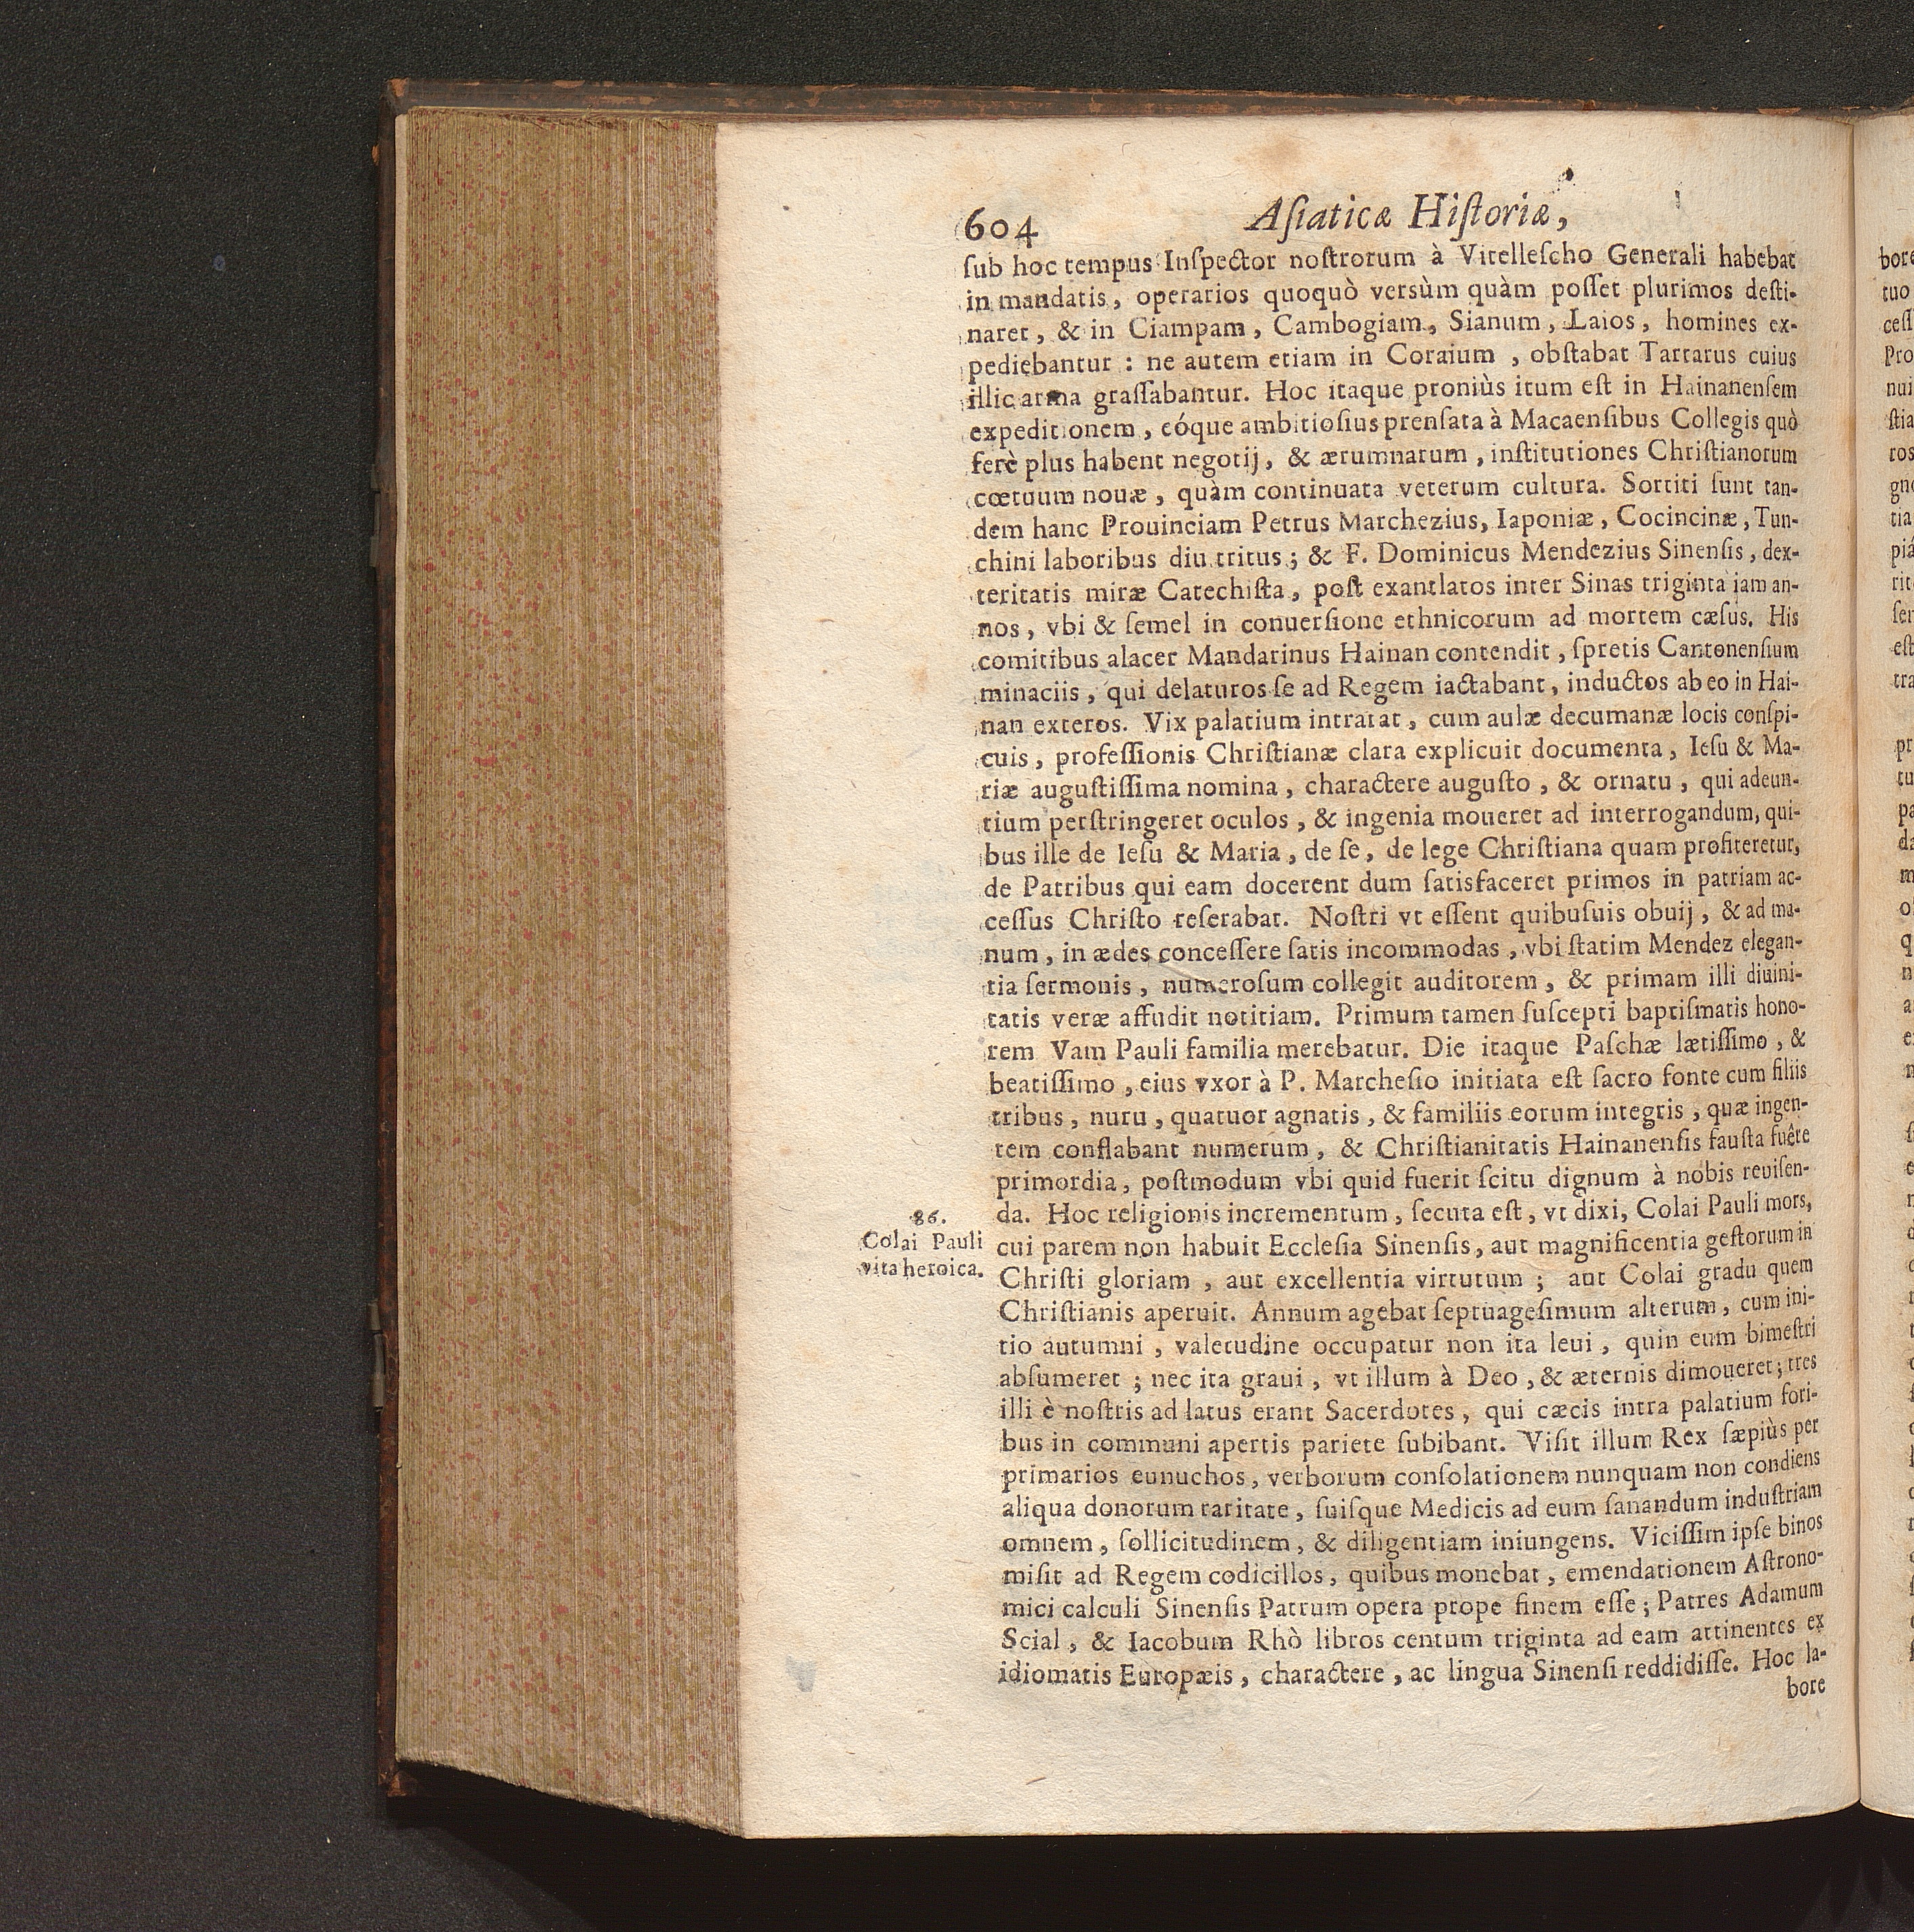 604 Aſiaticæ Hiſtoriæ,
ſub hoc tempus Inſpector noſtrorum à Vitelleſcho Generali habebat
in mandatis, operarios quoquò versùm quàm poſſet plurimos deſti-
naret, & in Ciampam, Cambogiam, Sianum, Laios, homines ex-
pediebantur : ne autem etiam in Coraium, obſtabat Tartarus cuius
illic arma graſſabantur. Hoc itaque proniùs itum eſt in Hainanenſem
expeditionem, eóque ambitioſius prenſata à Macaenſibus Collegis quò
ferè plus habent negotij, & ærumnarum, inſtitutiones Chriſtianorum
cœtuum nouæ, quàm continuata veterum cultura. Sortiti ſunt tan-
dem hanc Prouinciam Petrus Marchezius, Iaponiæ, Cocincinæ, Tun-
chini laboribus diu tritus ; & F. Dominicus Mendezius Sinenſis, dex-
teritatis miræ Catechiſta, poſt exantlatos inter Sinas triginta iam an-
nos, vbi & ſemel in conuerſione ethnicorum ad mortem cæſus. His
comitibus alacer Mandarinus Hainan contendit, ſpretis Cantonenſium
minaciis, qui delaturos ſe ad Regem iactabant, inductos ab eo in Hai-
nan exteros. Vix palatium intrarat, cum aulæ decumanæ locis conſpi-
cuis, profeſſionis Chriſtianæ clara explicuit documenta, Ieſu & Ma-
riæ auguſtiſſima nomina, charactere auguſto, & ornatu, qui adeun-
tium perſtringeret oculos, & ingenia moueret ad interrogandum, qui-
bus ille de Ieſu & Maria, de ſe, de lege Chriſtiana quam profiteretur,
de Patribus qui eam docerent dum ſatisfaceret primos in patriam ac-
ceſſus Chriſto reſerabat. Noſtri vt eſſent quibuſuis obuij, & ad ma-
num, in ædes conceſſere ſatis incommodas, vbi ſtatim Mendez elegan-
tia ſermonis, numeroſum collegit auditorem, & primam illi diuini-
tatis veræ affudit notitiam. Primum tamen ſuſcepti baptiſmatis hono-
rem Vam Pauli familia merebatur. Die itaque Paſchæ lætiſſimo, &
beatiſſimo, eius vxor à P. Marcheſio initiata eſt ſacro fonte cum filiis
tribus, nuru, quatuor agnatis, & familiis eorum integris, quæ ingen-
tem conflabant numerum, & Chriſtianitatis Hainanenſis fauſta fuêre
primordia, poſtmodum vbi quid fuerit ſcitu dignum à nobis reuiſen-
da. Hoc religionis incrementum, ſecuta eſt, vt dixi, Colai Pauli mors,
86.
Colai Pauli
vita heroica.
cui parem non habuit Eccleſia Sinenſis, aut magnificentia geſtorum in
Chriſti gloriam, aut excellentia virtutum ; aut Colai gradu quem
Chriſtianis aperuit. Annum agebat ſeptuageſimum alterum, cum ini-
tio autumni, valetudine occupatur non ita leui, quin eum bimeſtri
abſumeret ; nec ita graui, vt illum à Deo, & æternis dimoueret ; tres
illi è noſtris ad latus erant Sacerdotes, qui cæcis intra palatium fori-
bus in communi apertis pariete ſubibant. Viſit illum Rex ſæpiùs per
primarios eunuchos, verborum conſolationem nunquam non condiens
aliqua donorum raritate, ſuiſque Medicis ad eum ſanandum induſtriam
omnem, ſollicitudinem, & diligentiam iniungens. Viciſſim ipſe binos
miſit ad Regem codicillos, quibus monebat, emendationem Aſtrono-
mici calculi Sinenſis Patrum opera prope finem eſſe ; Patres Adamum
Scial, & Iacobum Rhò libros centum triginta ad eam attinentes ex
idiomatis Europæis, charactere, ac lingua Sinenſi reddidiſſe. Hoc la-
bore